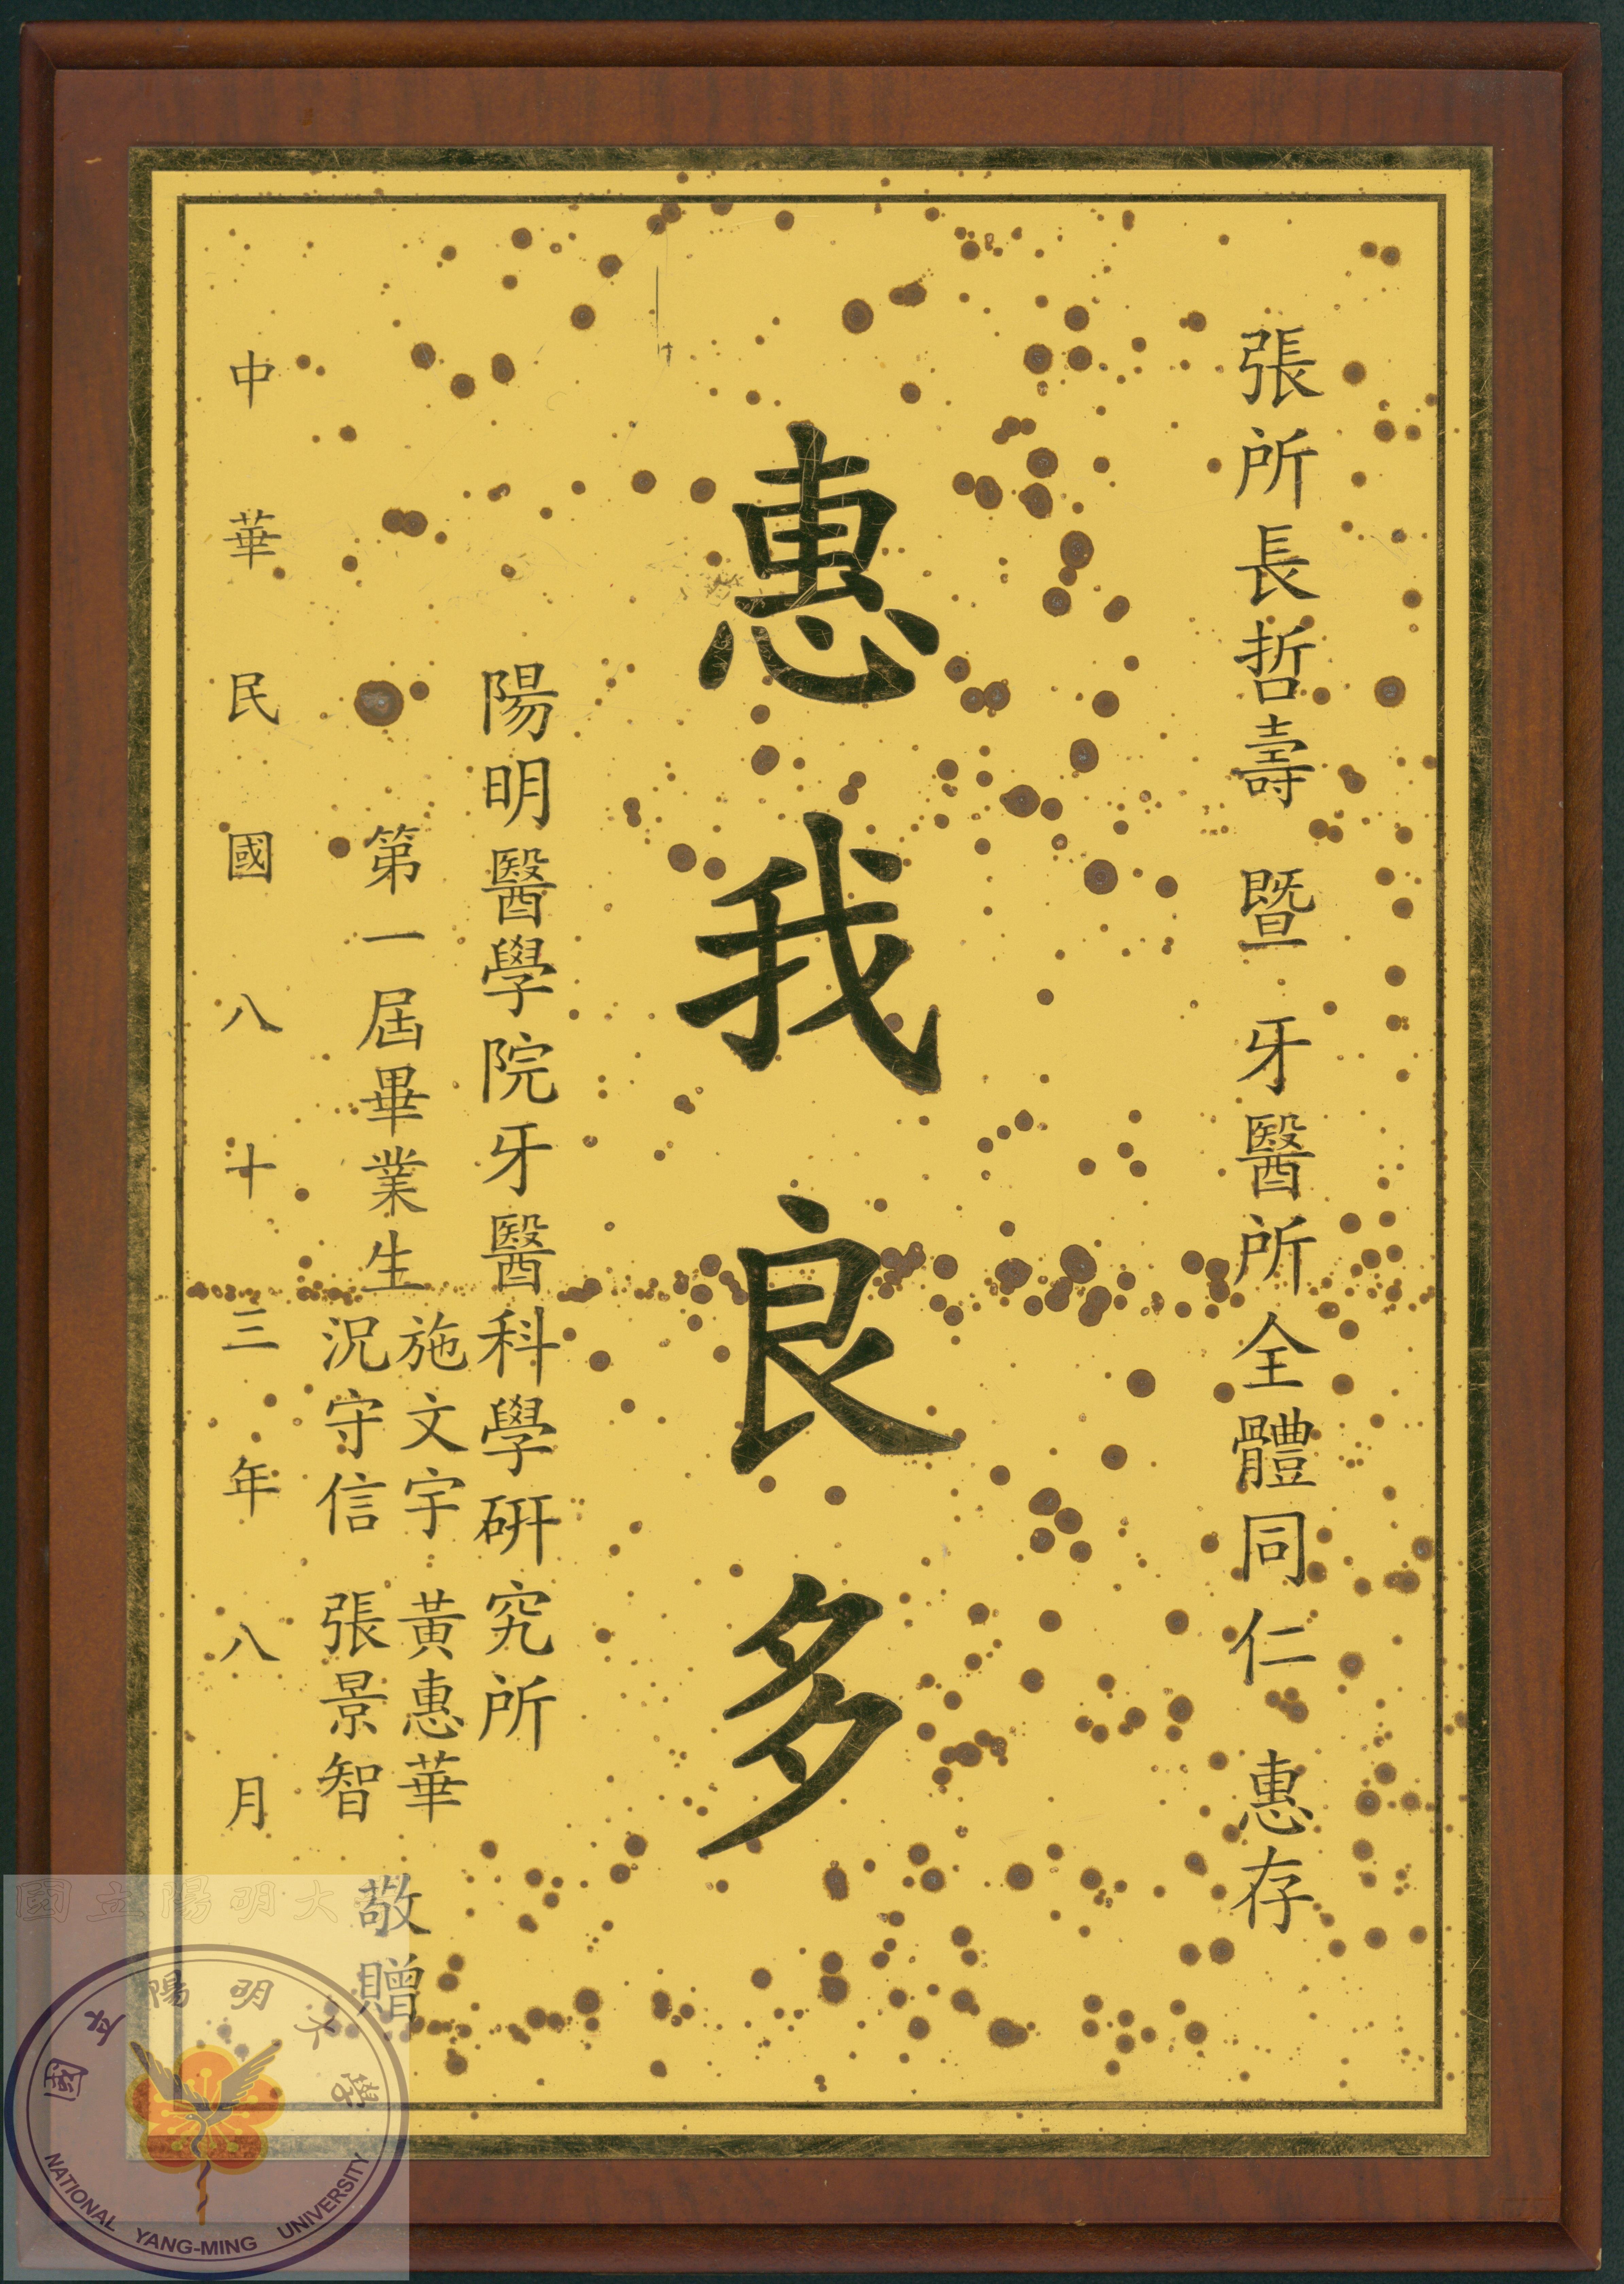 張所長哲壽 暨 牙醫所全體同仁 惠存
惠我良多
陽明醫學院牙醫科學研究所
第一屆畢業生
施文宇 黃惠華
況守信 張景智
敬贈
中華民國八十三年八月
國立陽明大
國立陽明大學
NATIONAL YANG-MING UNIVERSITY